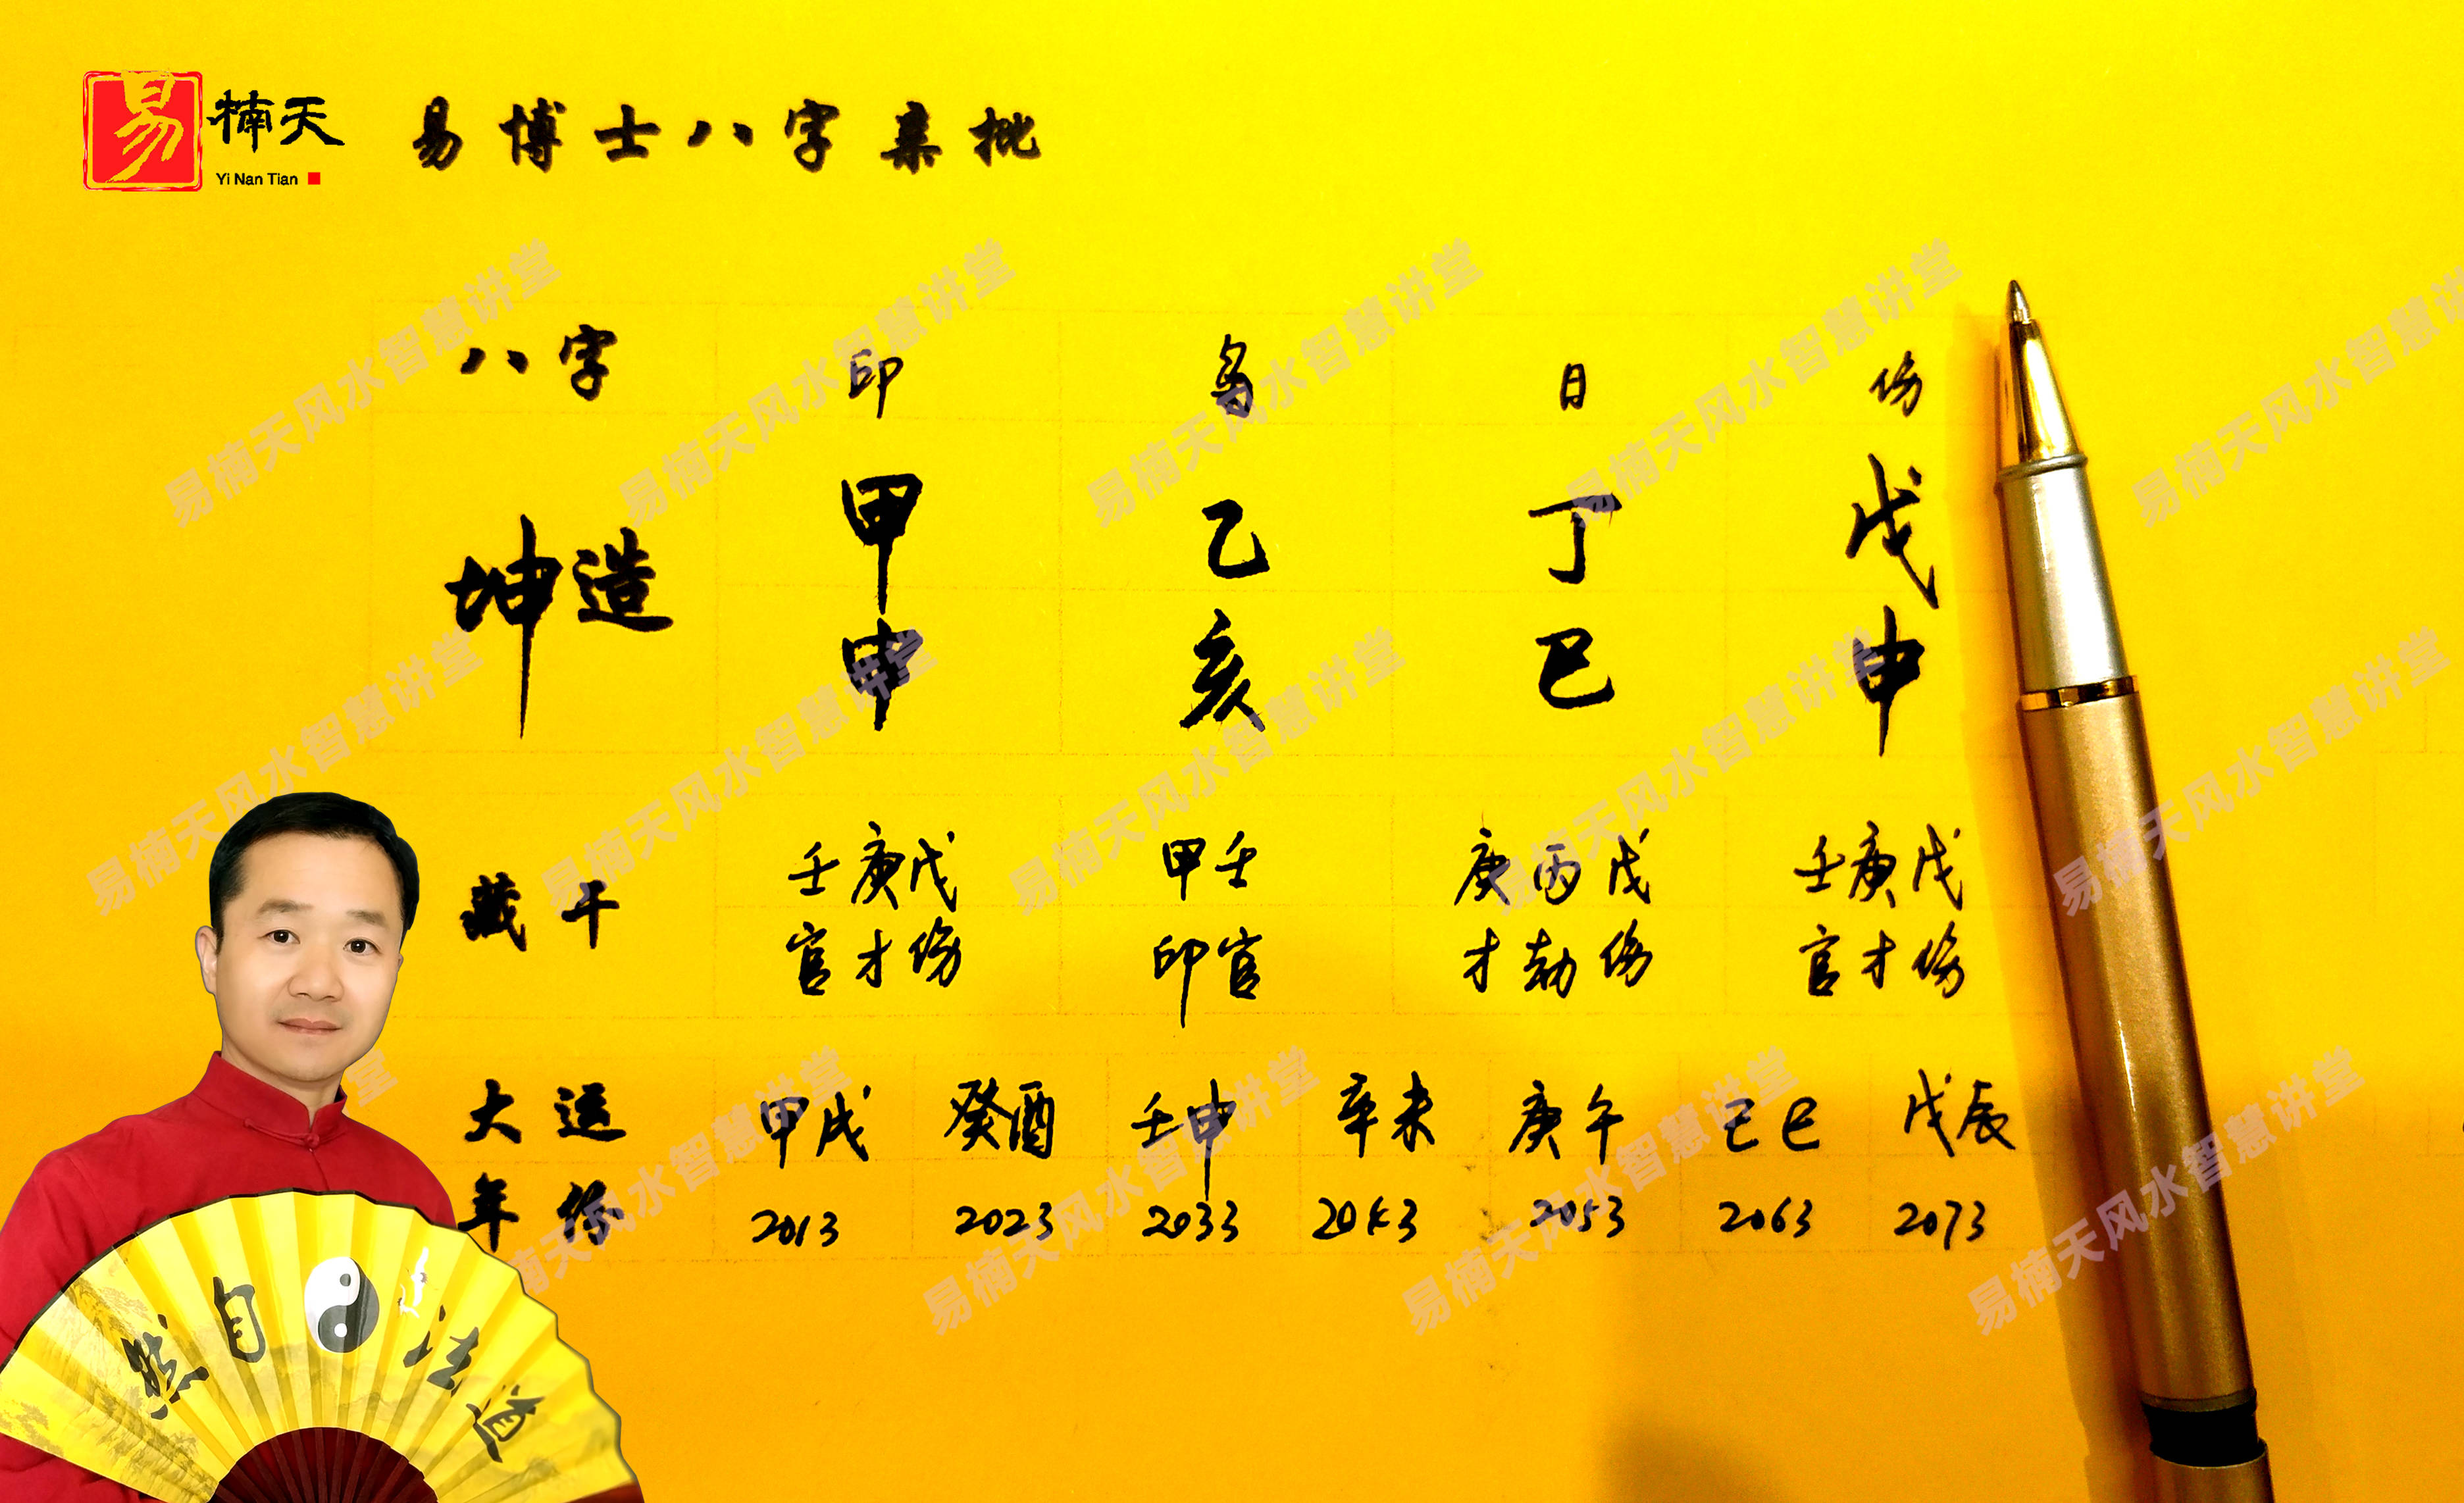 易 楠天 易博士八字亲批
Yi Nan Tian
八字 印 枭 日 伤
坤造 甲 乙 丁 戊
申 亥 巳 申
藏干 壬庚戊 甲壬 庚丙戊 壬庚戊
官才伤 印官 才劫伤 官才伤
大运 甲戌 癸酉 壬申 辛未 庚午 己巳 戊辰
年份 2013 2023 2033 2043 2053 2063 2073
道法自然
易楠天风水智慧讲堂